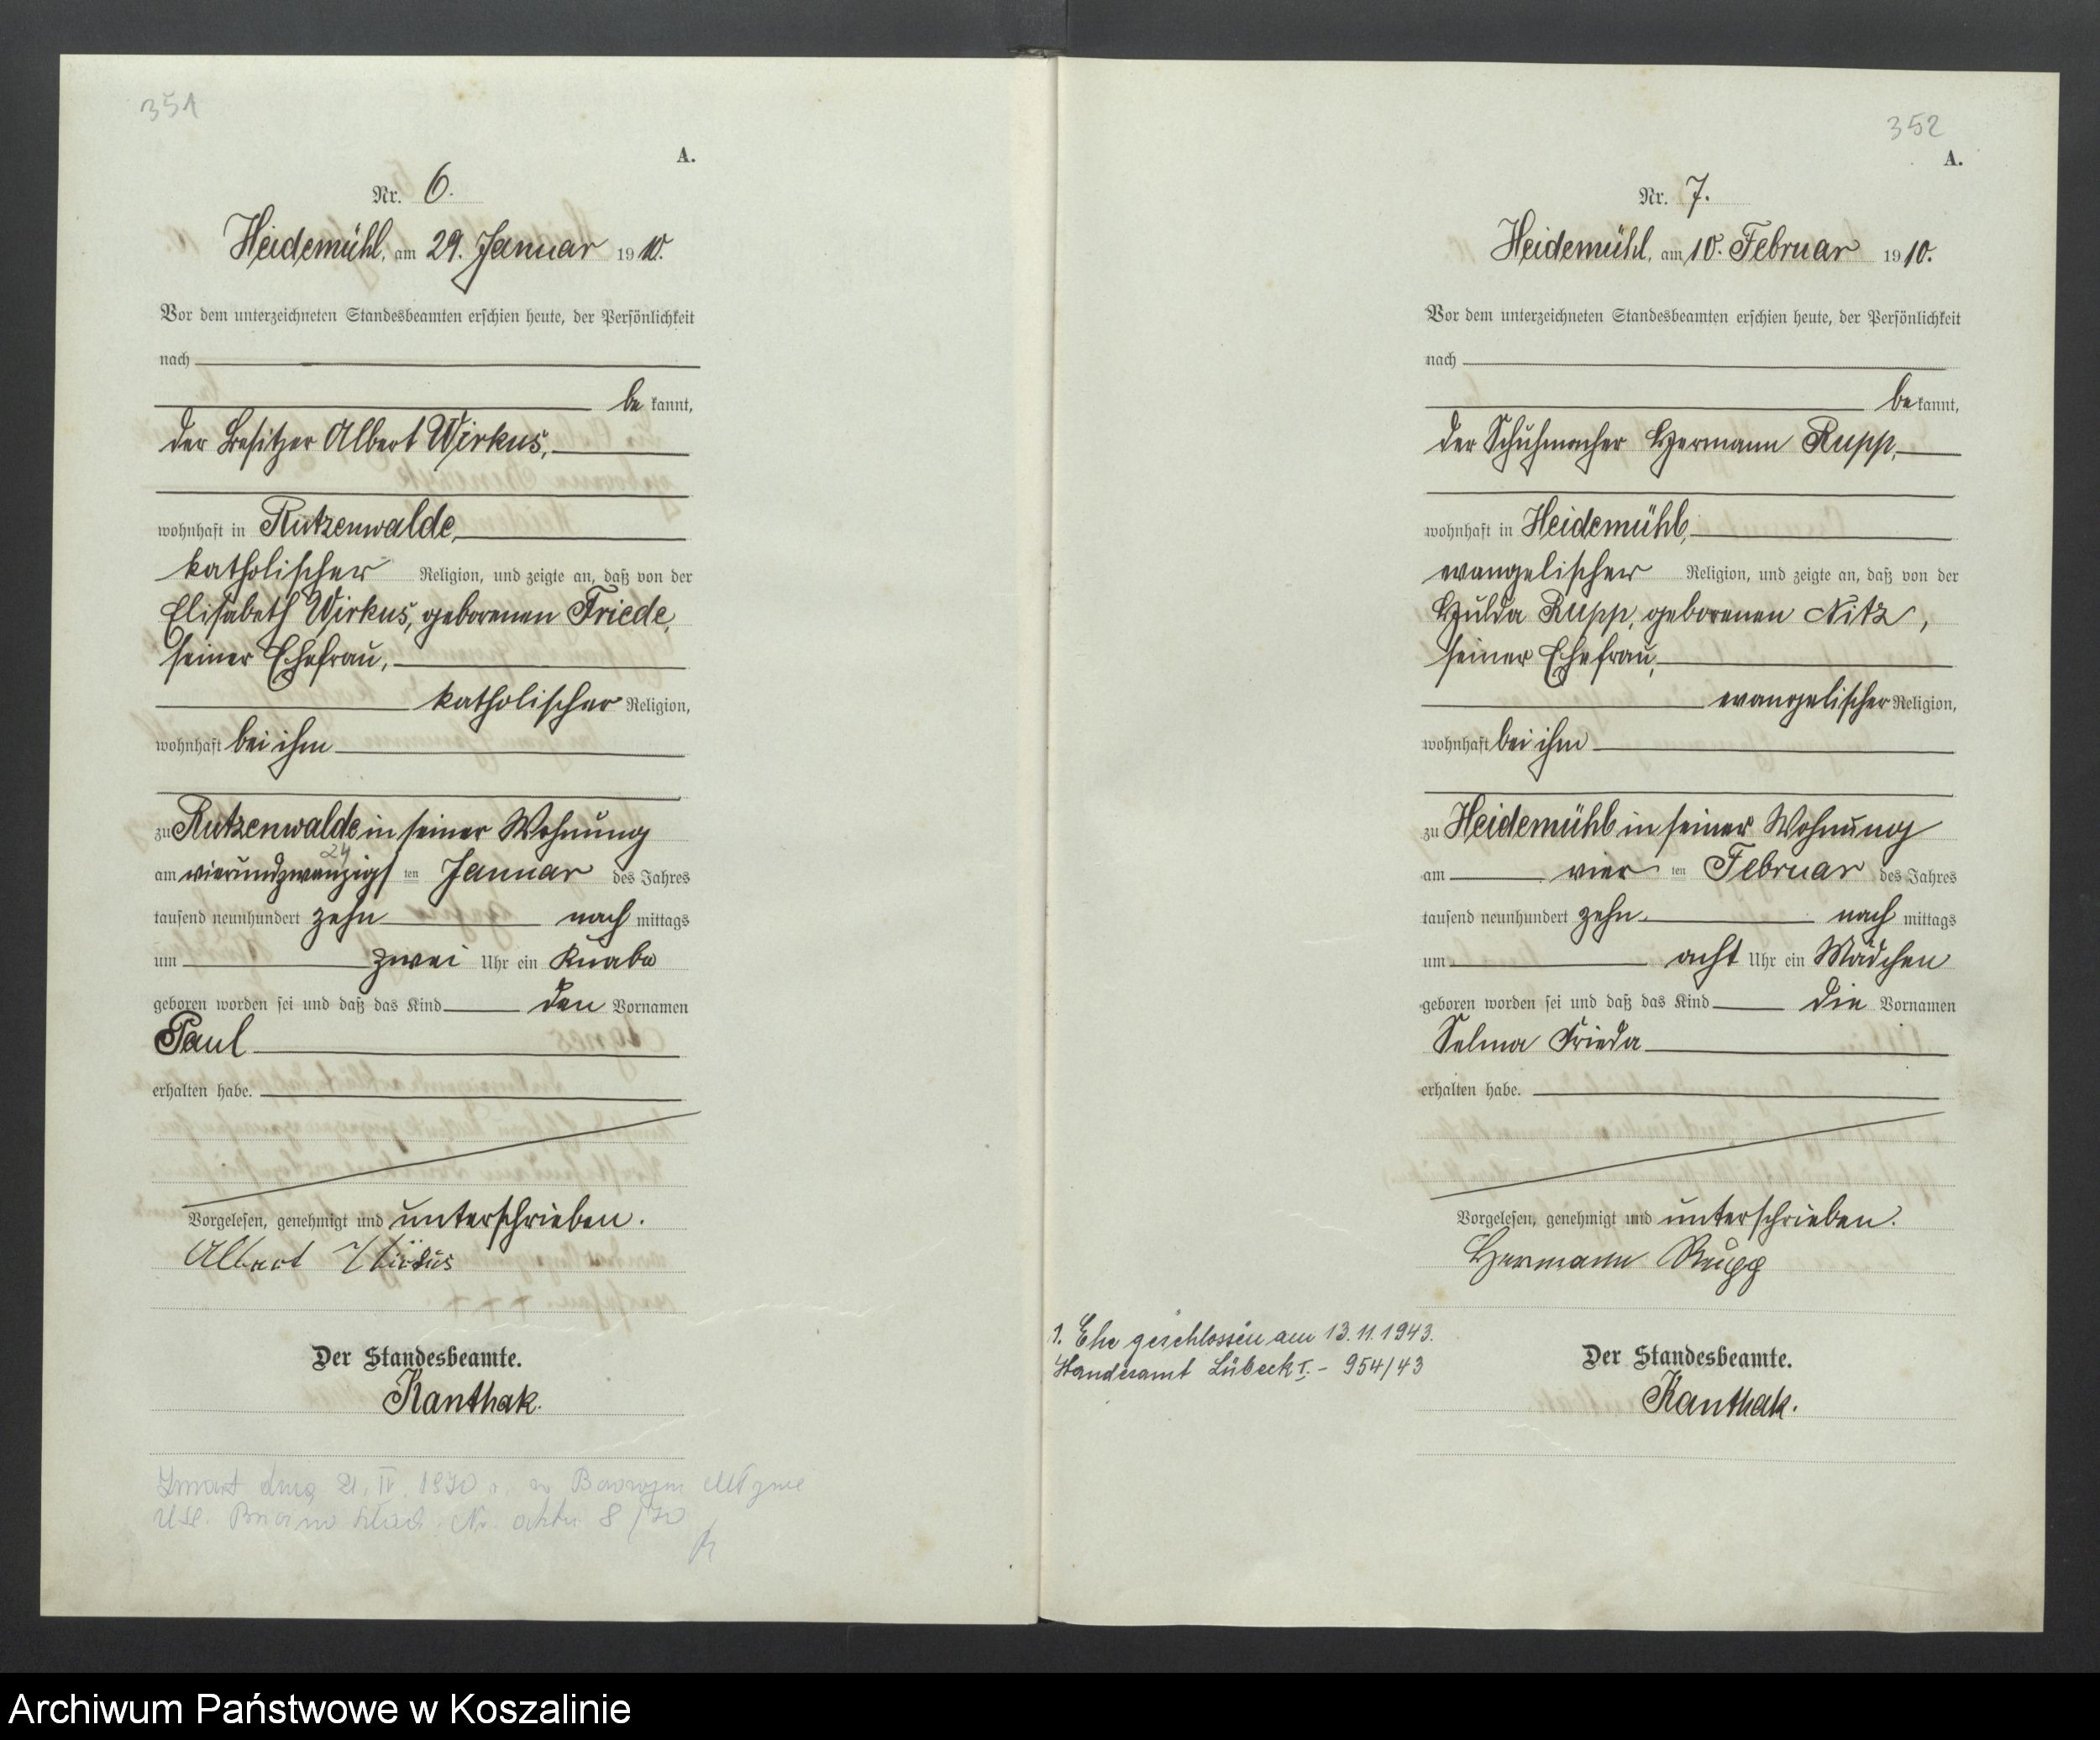 351
A.
Nr. 6.
Heidemühl, am 29. Januar 1910.
Vor dem unterzeichneten Standesbeamten erschien heute, der Persönlichkeit
nach
be kannt,
der Besitzer Albert Wirkus,
wohnhaft in Rutzenwalde,
katholischer Religion, und zeigte an, daß von der
Elisabeth Wirkus, geborenen Friede,
seiner Ehefrau,
katholischer Religion,
wohnhaft bei ihm
zu Rutzenwalde in seiner Wohnung
24
am vierundzwanzigsten Januar des Jahres
tausend neunhundert zehn nach mittags
um zwei Uhr ein Knabe
geboren worden sei und daß das Kind den Vornamen
Paul
erhalten habe.
Vorgelesen, genehmigt und unterschrieben.
Albert Wirkus
Der Standesbeamte.
Kanthak.
dnia 21. IV. 1970 r. w
USC. Nr. aktu 8/70
352
A.
Nr. 7.
Heidemühl, am 10. Februar 1910.
Vor dem unterzeichneten Standesbeamten erschien heute, der Persönlichkeit
nach
be kannt,
der Schuhmacher Hermann Rupp,
wohnhaft in Heidemühl,
evangelischer Religion, und zeigte an, daß von der
Hulda Rupp, geborenen Nitz,
seiner Ehefrau,
evangelischer Religion,
wohnhaft bei ihm
zu Heidemühl in seiner Wohnung
am vier ten Februar des Jahres
tausend neunhundert zehn nach mittags
um acht Uhr ein Mädchen
geboren worden sei und daß das Kind die Vornamen
Selma Frieda
erhalten habe.
Vorgelesen, genehmigt und unterschrieben.
Hermann Rupp
1. Ehe geschlossen am 13.11.1943.
Standesamt Lübeck I. - 954/43
Der Standesbeamte.
Kanthak.
Archiwum Państwowe w Koszalinie